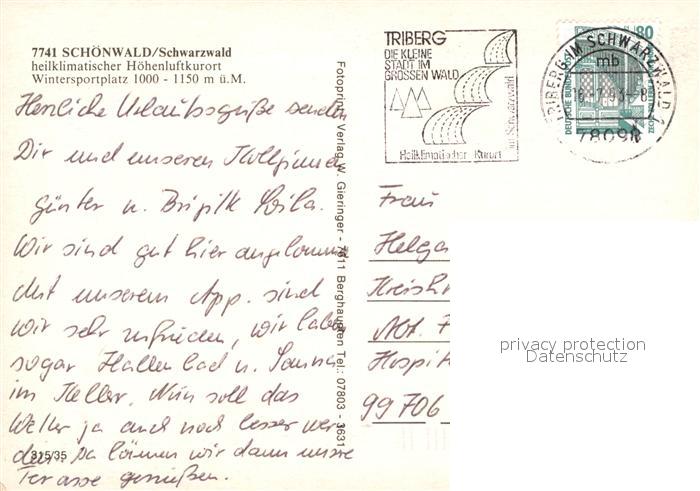 7741 SCHÖNWALD/Schwarzwald
heilklimatischer Höhenluftkurort
Wintersportplatz 1000 - 1150 m ü.M.
Herzliche Urlaubsgrüße senden
Dir und unseren
Günter u. Brigitte
Wir sind gut hier angekommen
Mit unserem App. sind
wir sehr zufrieden, wir haben
sogar Hallenbad u. Sauna
im Keller. Nun soll das
Wetter ja auch noch besser wer
den. Da können wir dann unsere
Terasse genießen.
315/35
Fotoprint Verlag W. Gieringer - 7611 Berghaupten Tel.: 07803 - 3631
TRIBERG
DIE KLEINE
STADT IM
GROSSEN WALD
Heilklimatischer Kurort
im Schwarzwald
TRIBERG IM SCHWARZWALD 1
mb
78098
80
DEUTSCHE BUNDESPOST
Frau
Helga
Abt.
99706
privacy protection
Datenschutz